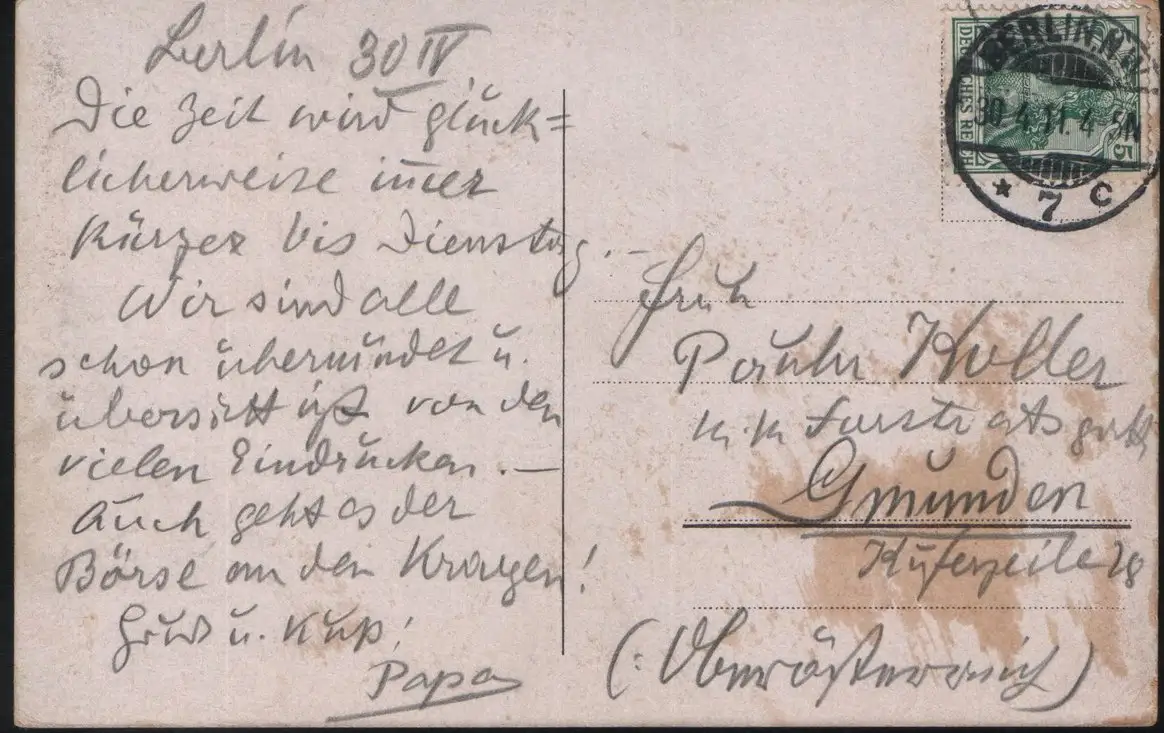 Berlin 30 IV
Die Zeit wird glück=
licherweise im̄er
kürzer bis Dienstag.–
Wir sind alle
schon übermüdet u.
übersättigt von den
vielen Eindrücken.—
Auch geht es der
Börse an den Kragen!
Gruß u. Kuß!
Papa
DEUTSCHES REICH
5
BERLIN.N.W.
30.4.11.4-5N
* 7 c
Frau
Paula Koller
k.k. Forstratsgatt
Gmunden
Kuferzeile 28
(: Oberösterreich)